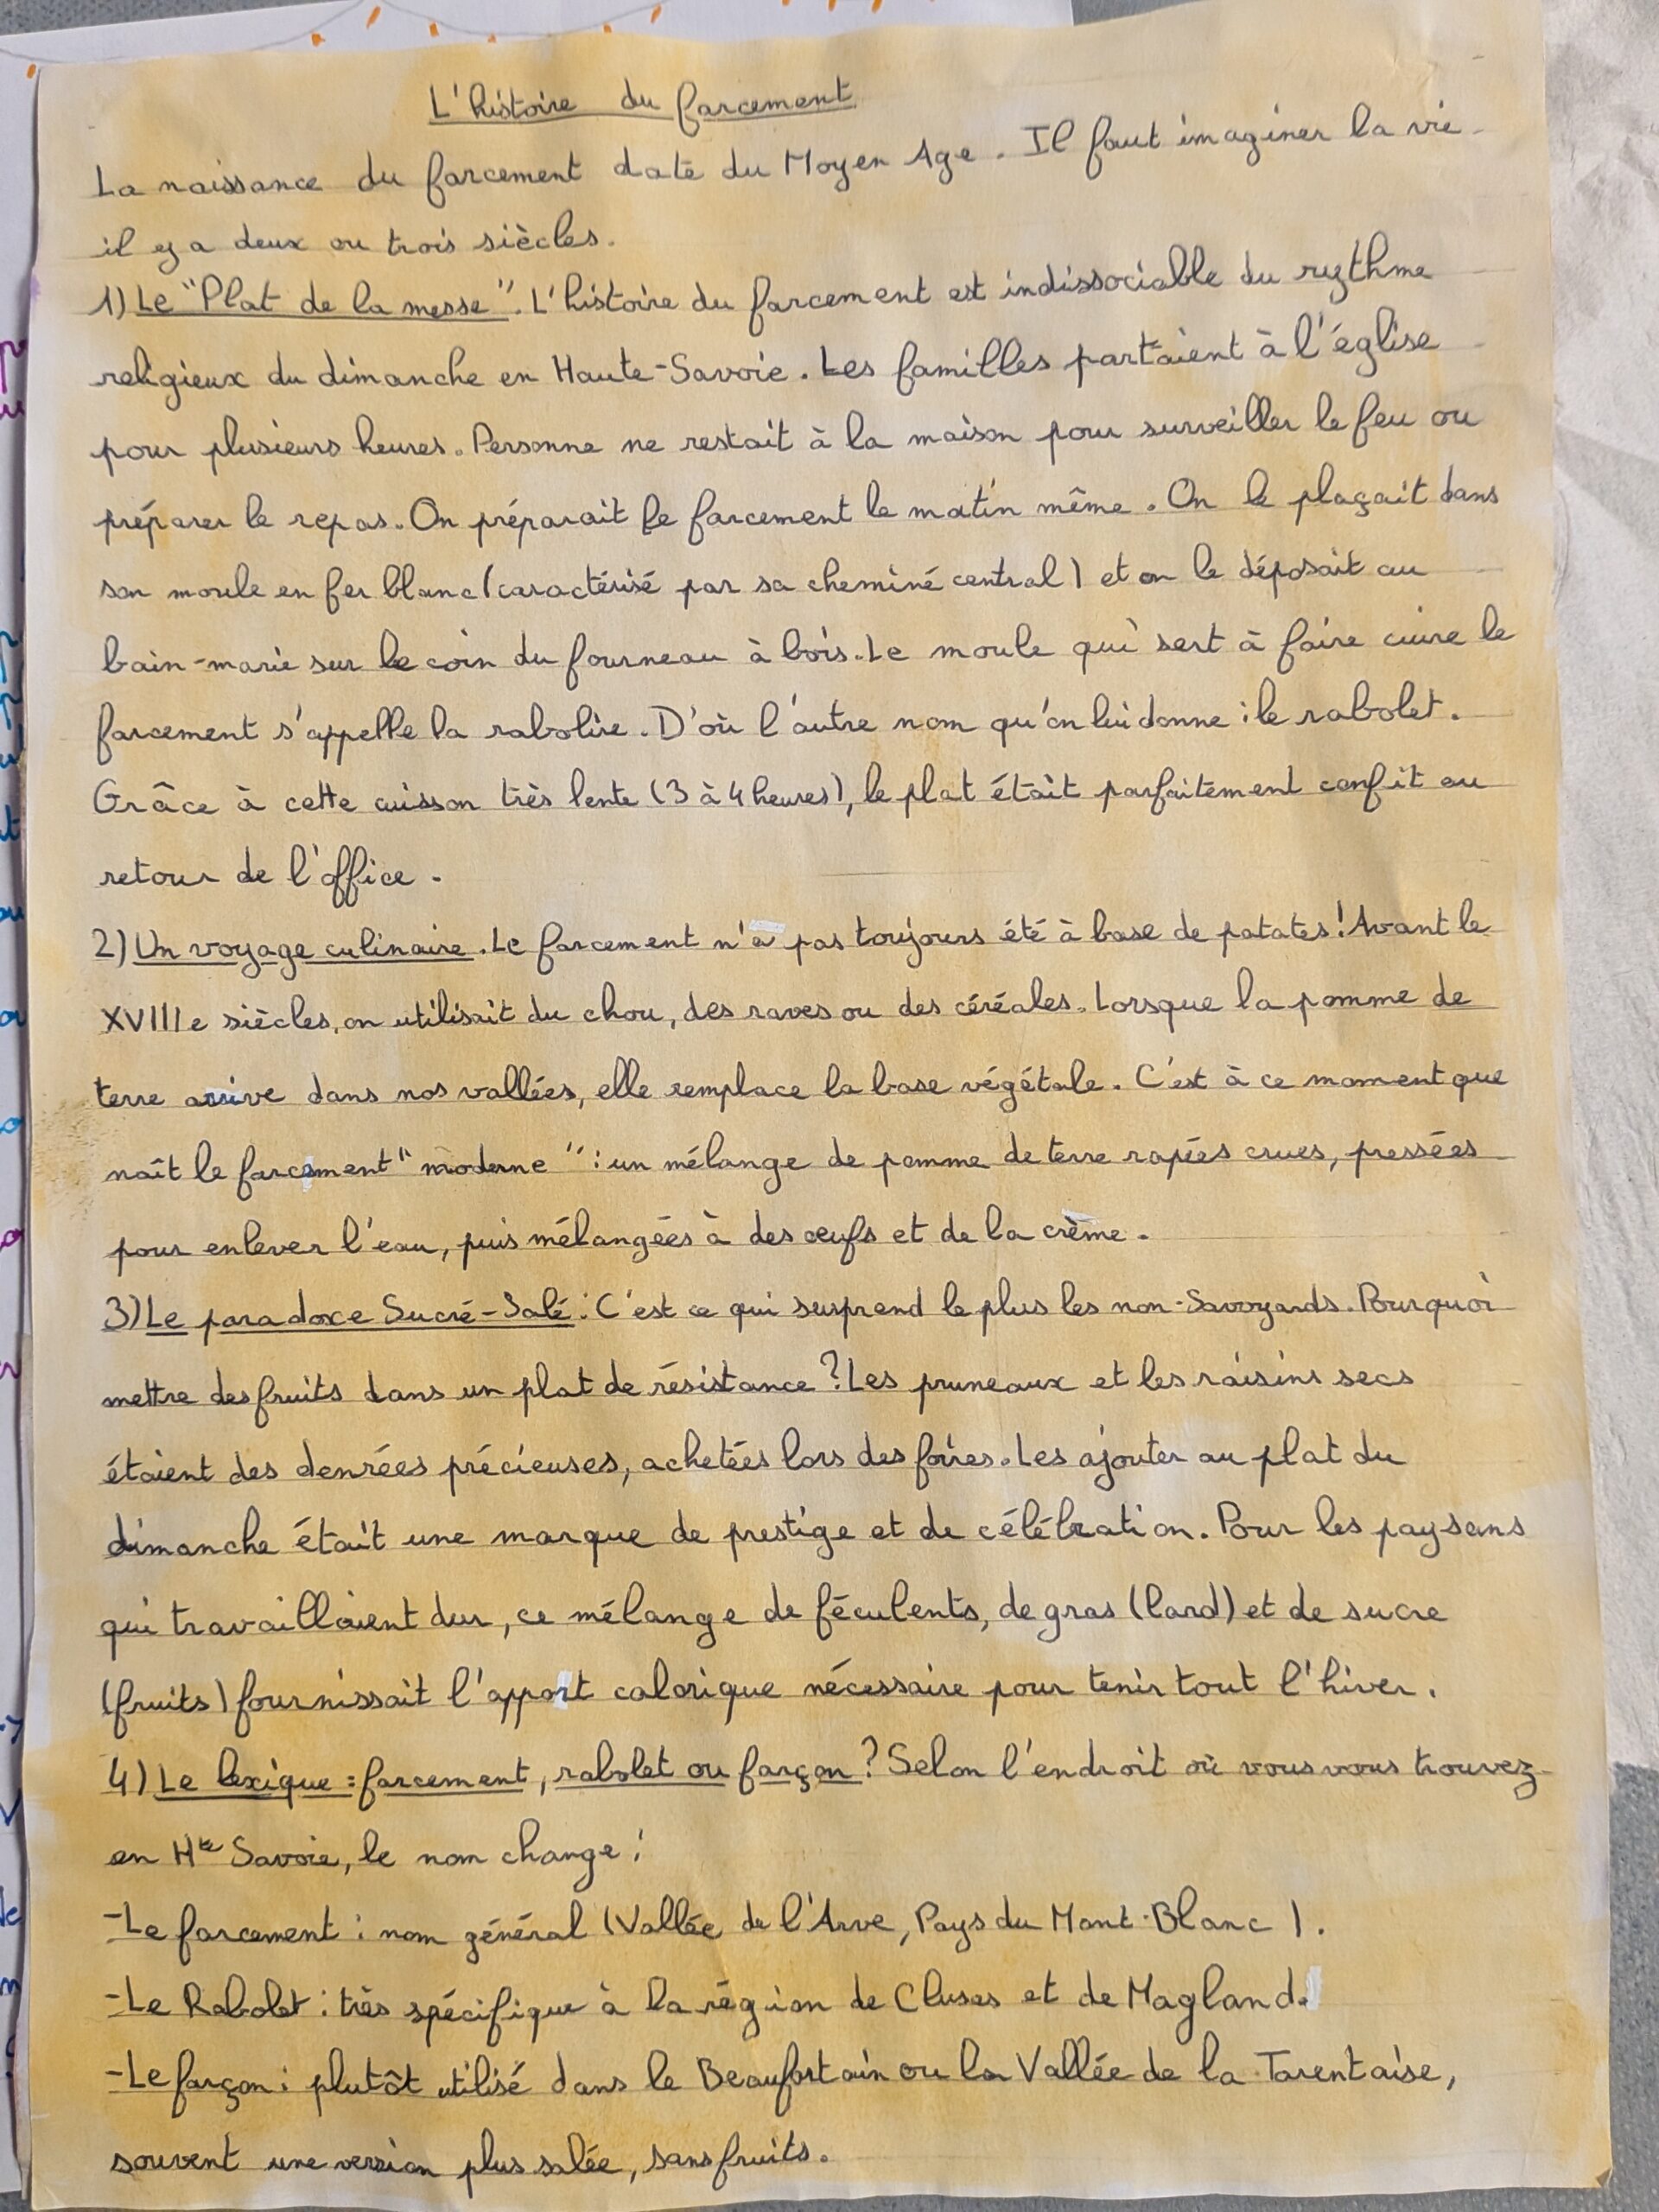 L'histoire du farcement
La naissance du farcement date du Moyen Age. Il faut imaginer la vie
il y a deux ou trois siècles.
1) Le "Plat de la messe". L'histoire du farcement est indissociable du rythme
religieux du dimanche en Haute-Savoie. Les familles partaient à l'église
pour plusieurs heures. Personne ne restait à la maison pour surveiller le feu ou
préparer le repas. On préparait le farcement le matin même. On le plaçait dans
son moule en fer blanc (caractérisé par sa cheminé central) et on le déposait au
bain-marie sur le coin du fourneau à bois. Le moule qui sert à faire cuire le
farcement s'appelle la rabolire. D'où l'autre nom qu'on lui donne : le rabolet.
Grâce à cette cuisson très lente (3 à 4 heures), le plat était parfaitement confit au
retour de l'office.
2) Un voyage culinaire. Le farcement n'a pas toujours été à base de patates ! Avant le
XVIIIe siècles, on utilisait du chou, des raves ou des céréales. Lorsque la pomme de
terre arrive dans nos vallées, elle remplace la base végétale. C'est à ce moment que
naît le farcement "moderne" : un mélange de pomme de terre rapées crues, pressées
pour enlever l'eau, puis mélangées à des œufs et de la crème.
3) Le paradoxe Sucré-Salé : C'est ce qui surprend le plus les non-Savoyards. Pourquoi
mettre des fruits dans un plat de résistance ? Les pruneaux et les raisins secs
étaient des denrées précieuses, achetées lors des foires. Les ajouter au plat du
dimanche était une marque de prestige et de célébration. Pour les paysans
qui travaillaient dur, ce mélange de féculents, de gras (lard) et de sucre
(fruits) fournissait l'apport calorique nécessaire pour tenir tout l'hiver.
4) Le lexique : farcement, rabolet ou farçon ? Selon l'endroit où vous vous trouvez
en Hte Savoie, le nom change :
-Le farcement : nom général (Vallée de l'Arve, Pays du Mont-Blanc).
-Le Rabolet : très spécifique à la région de Cluses et de Magland.
-Le farçon : plutôt utilisé dans le Beaufortain ou la Vallée de la Tarentaise,
souvent une version plus salée, sans fruits.